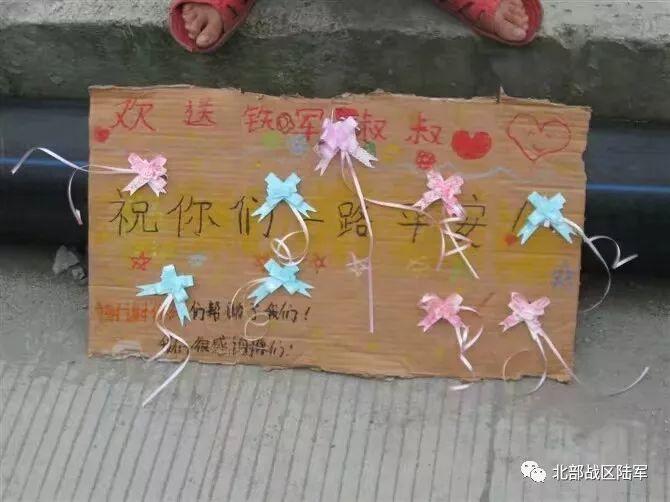 欢送铁军叔叔
祝你们一路平安!
谢谢你们帮助了我们!
我们很感谢你们!
北部战区陆军